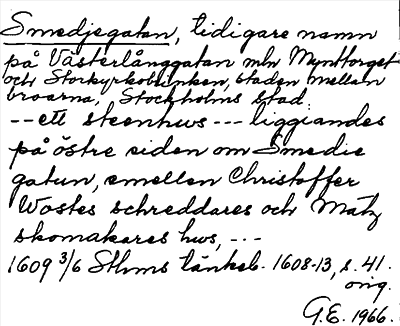 Smedjegatan, tidigare namn
på Västerlånggatan mln Mynttorget
och Storkyrkobrinken, staden mellan
broarna, Stockholms stad.
-- ett steenhws --- liggiandes
på östre siden om Smedie
gatun, emellen Christoffer
Wostes schreddares och Matz
skomakares hws, -.-
1609 3/6 Sthms tänkeb. 1608-13, s. 41.
orig.
G.E. 1966.